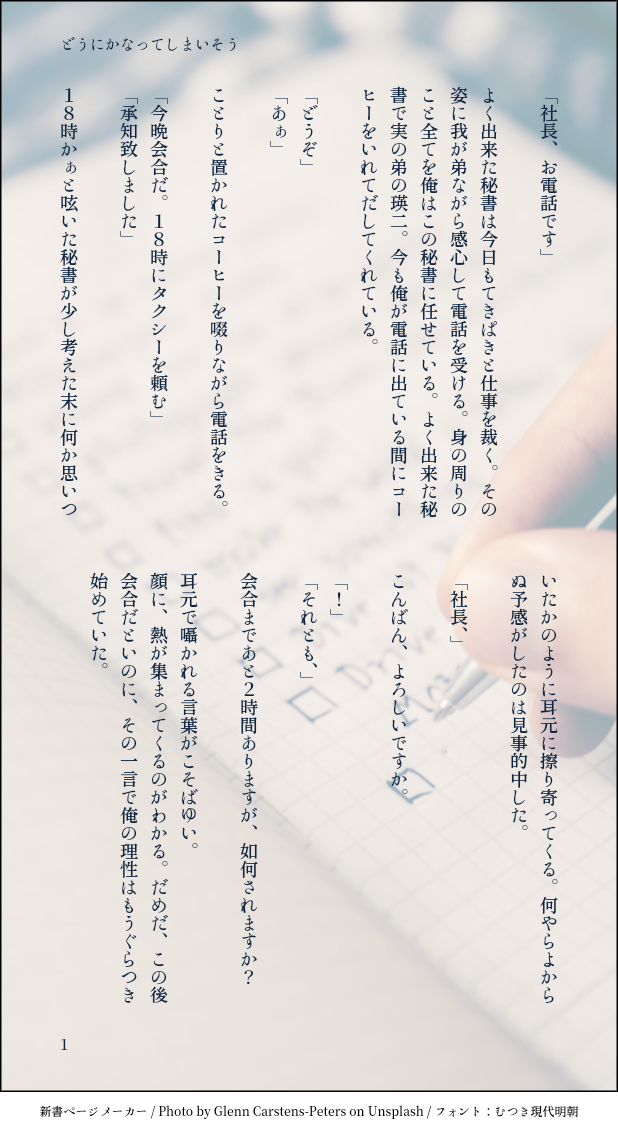 どうにかなってしまいそう
「社長、お電話です」
よく出来た秘書は今日もてきぱきと仕事を裁く。その
姿に我が弟ながら感心して電話を受ける。身の周りの
こと全てを俺はこの秘書に任せている。よく出来た秘
書で実の弟の瑛二。今も俺が電話に出ている間にコー
ヒーをいれてだしてくれている。
「どうぞ」
「あぁ」
ことりと置かれたコーヒーを啜りながら電話をきる。
「今晩会合だ。18時にタクシーを頼む」
「承知致しました」
18時かぁと呟いた秘書が少し考えた末に何か思いつ
いたかのように耳元に擦り寄ってくる。何やらよから
ぬ予感がしたのは見事的中した。
「社長、」
こんばん、よろしいですか。
「！」
「それとも、」
会合まであと2時間ありますが、如何されますか？
耳元で囁かれる言葉がこそばゆい。
顔に、熱が集まってくるのがわかる。だめだ、この後
会合だといのに、その一言で俺の理性はもうぐらつき
始めていた。
1
新書ページメーカー / Photo by Glenn Carstens-Peters on Unsplash / フォント：むつき現代明朝